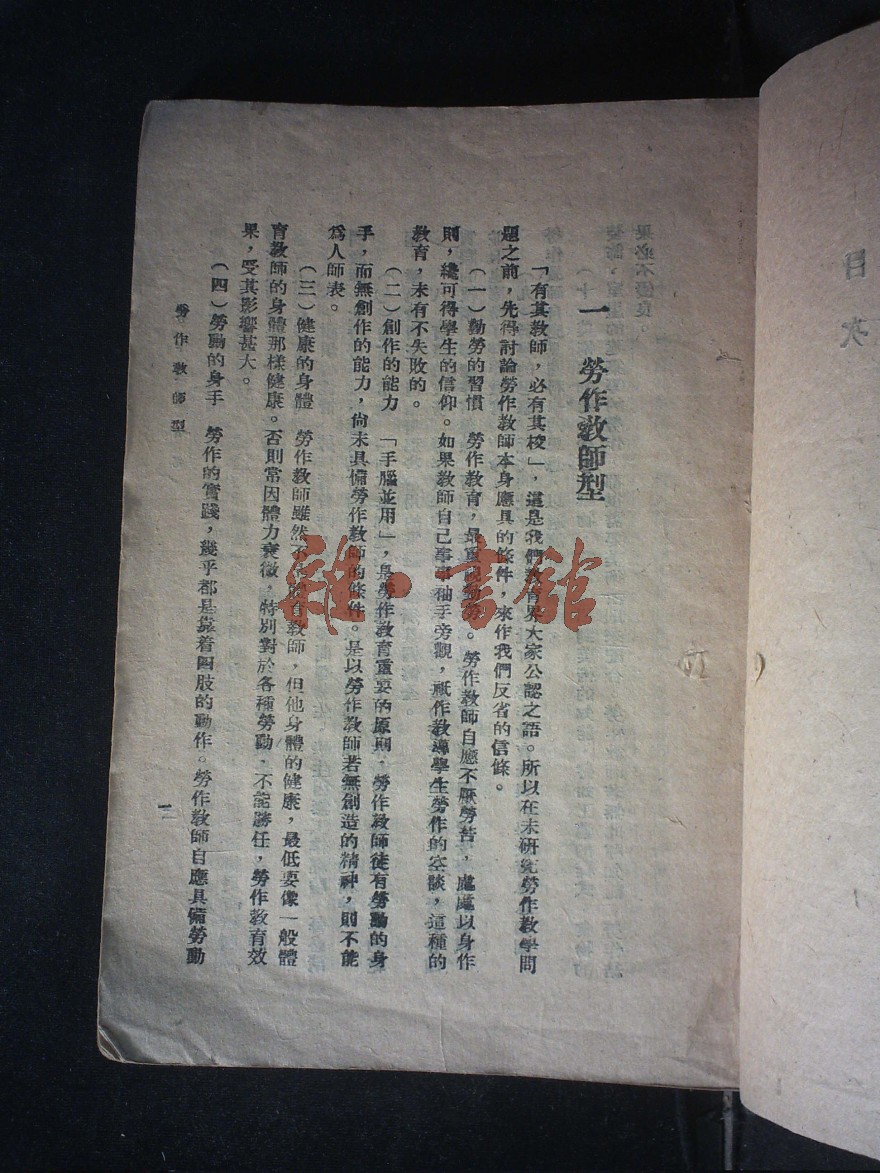 一 勞作教師型
「有其教師,必有其校」,這是我們教育界大家公認之語。所以在未研究勞作教學問
題之前,先得討論勞作教師本身應具的條件,來作我們反省的信條。
(一)勤勞的習慣 勞作教育,最重視勤勞。勞作教師自應不厭勞苦,處處以身作
則,纔可得學生的信仰。如果教師自己事事袖手旁觀,祇作教導學生勞作的空談,這種的
教育,未有不失敗的。
(二)創作的能力 「手腦並用」,是勞作教育重要的原則,勞作教師徒有勞動的身
手,而無創作的能力,尙未具備勞作教師的條件。是以勞作教師若無創造的精神,則不能
爲人師表。
(三)健康的身體 勞作教師雖然不是體育教師,但他身體的健康,最低要像一般體
育教師的身體那樣健康。否則常因體力衰微,特別對於各種勞動,不能勝任,勞作教育效
果,受其影響甚大。
(四)勞動的身手 勞作的實踐,幾乎都是靠着四肢的動作。勞作教師自應具備勞動
勞作教師型
一
雜·書館
目次